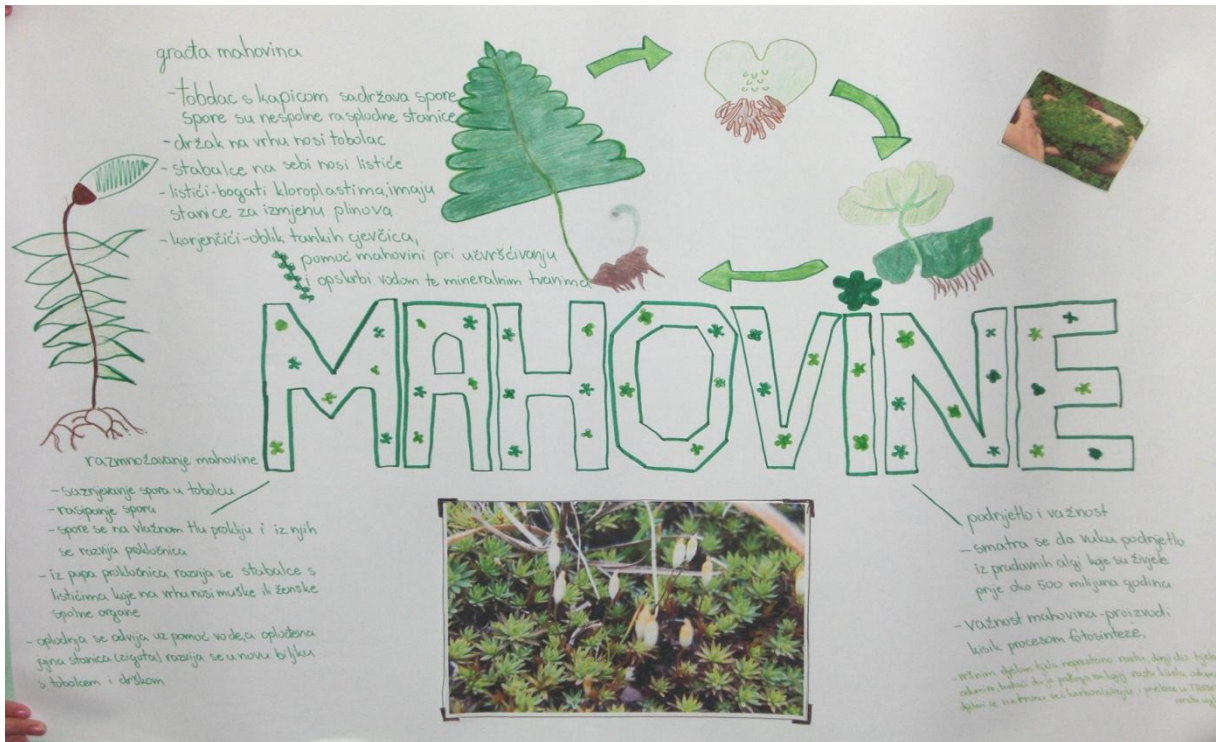 građa mahovina
-tobolac s kapicom sadržava spore
spore su nespolne rasplodne stanice
-držak na vrhu nosi tobolac
-stabalce na sebi nosi listiće
-listići-bogati kloroplastima, imaju
stanice za izmjenu plinova
-korjenčići-oblik tankih cjevčica,
pomoć mahovini pri učvršćivanju
i opskrbi vodom te mineralnim tvarima
MAHOVINE
razmnožavanje mahovine
-sazrijevanje spora u tobolcu
-rasipanje spora
-spore se na vlažnom tlu prokliju i iz njih
se razvija proklićnica
-iz pupa proklićnica razvija se stabalce s
listićima koje na vrhu nosi muške ili ženske
spolne organe
-oplodnja se odvija uz pomoć vode, a oplođena
jajna stanica (zigota) razvija se u novu biljku
s tobolcem i drškom
podrijetlo i važnost
-smatra se da vuku podrijetlo
iz pradavnih algi koje su živjele
prije oko 500 milijuna godina
-važnost mahovina-proizvodi
kisik procesom fotosinteze,
-vršnim dijelom tijela neprestano rastu, donji dio
se i karbonizacije i prelaze u